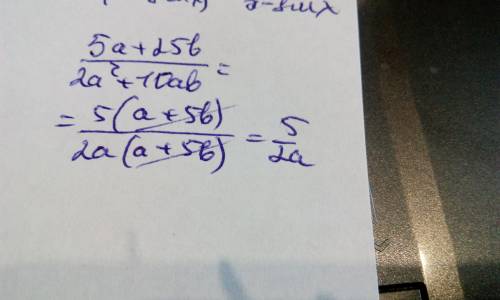 5a+25b
2a²+10ab =
= 5(a+5b)
2a(a+5b) = 5
2a